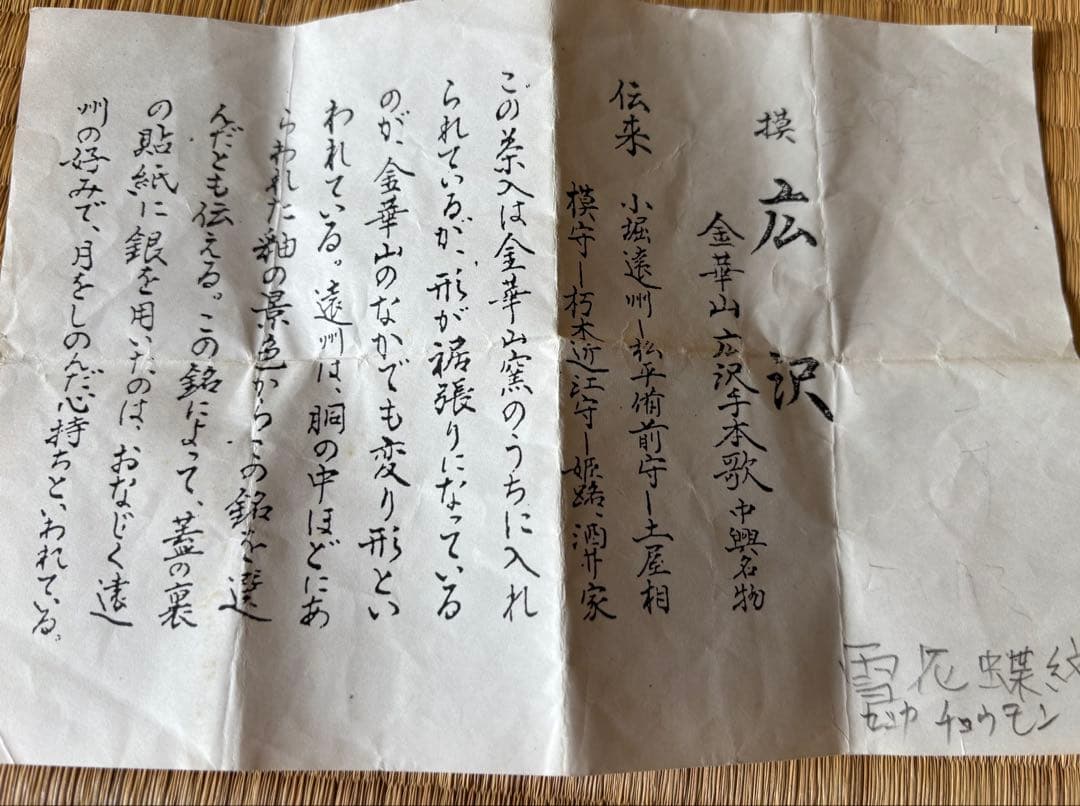 模 広沢
金華山 広沢手本歌 中興名物
伝来 小堀遠州ー松平備前守ー土屋相
模守ー朽木近江守ー姫路、酒井家
この茶入は金華山窯のうちに入れ
られているが、形が裾張りになっている
のが、金華山のなかでも変り形とい
われている。遠州は、胴の中ほどにあ
らわれた釉の景色からこの銘を選
んだとも伝える。この銘によって、蓋の裏
の貼紙に銀を用いたのは、おなじく遠
州の好みで、月をしのんだ心持ちと、いわれている。
雪花蝶紋
セッカ チョウモン